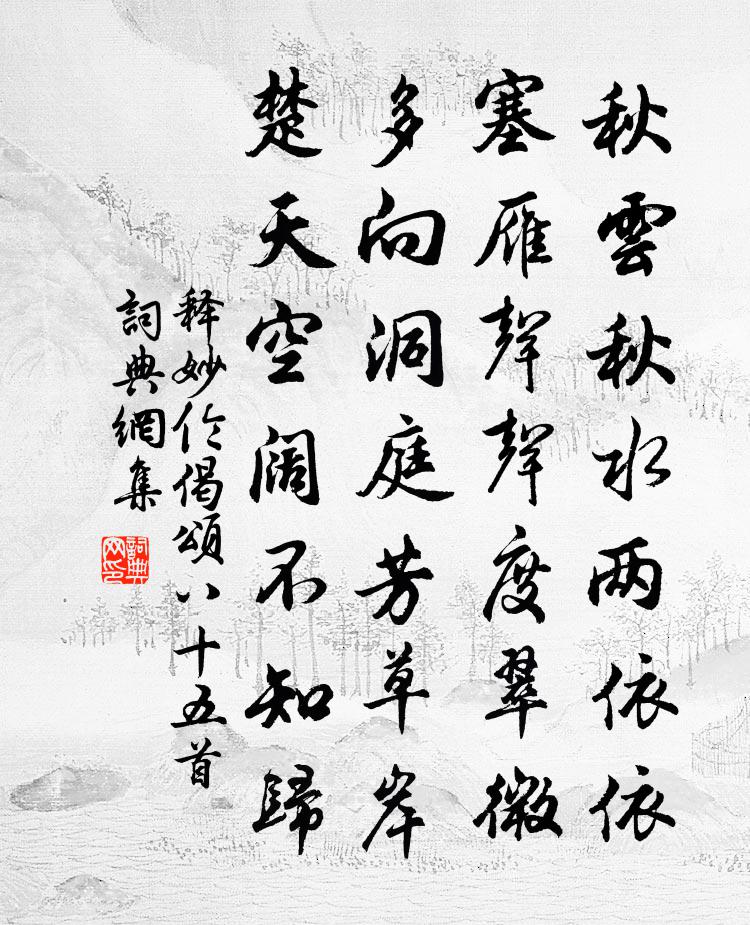 秋雲秋水两依依
塞雁聲聲度翠微
多向洞庭芳草岸
楚天空闊不知歸
释妙伦偈頌八十五首
詞典網集
詞典网印